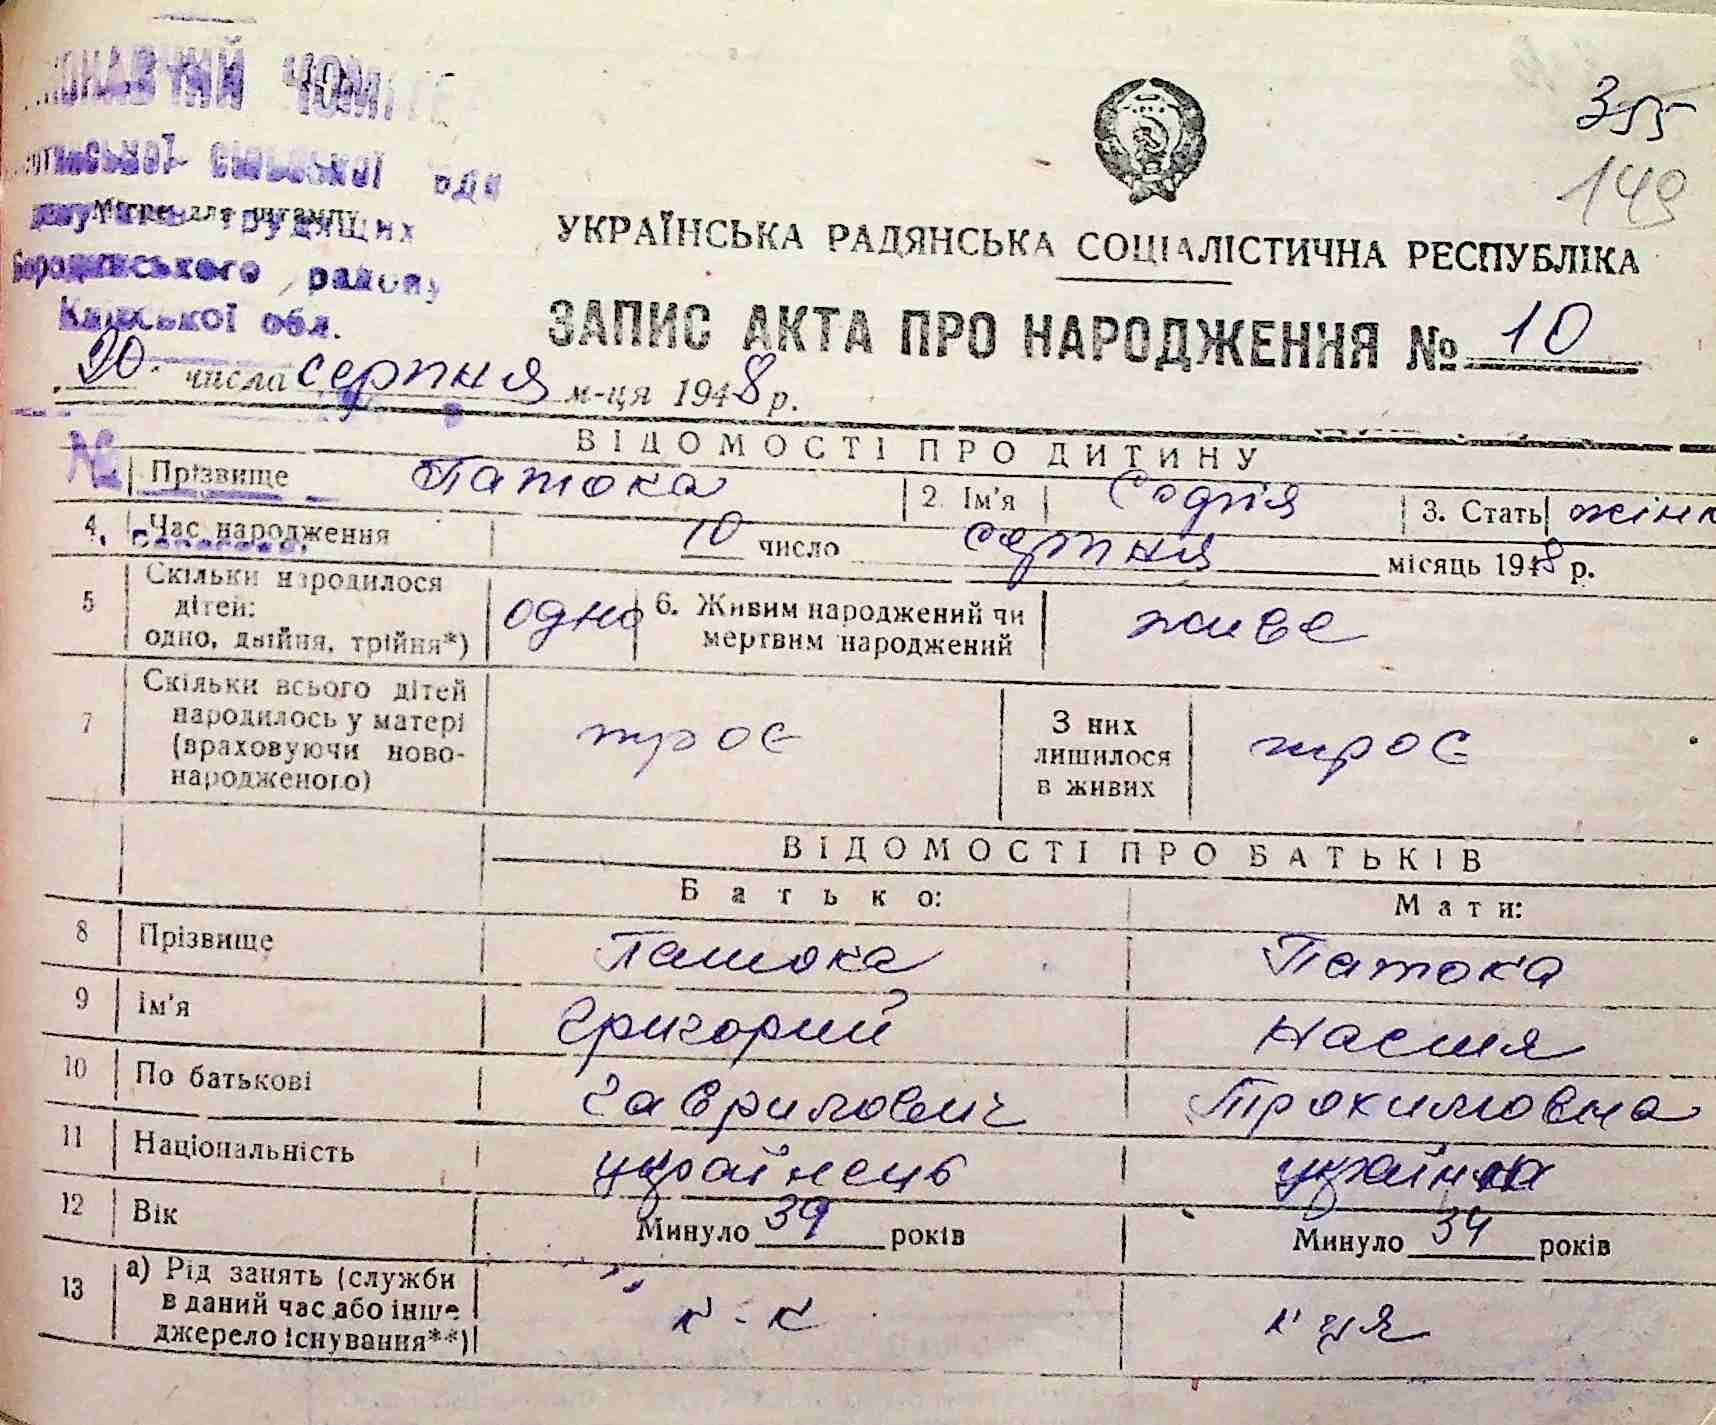 355
149
Місце для штампу
трудящих
району
Київської обл.
УКРАЇНСЬКА РАДЯНСЬКА СОЦІАЛІСТИЧНА РЕСПУБЛІКА
ЗАПИС АКТА ПРО НАРОДЖЕННЯ № 10
20 числа серпня м-ця 1948 р.
№
ВІДОМОСТІ ПРО ДИТИНУ
Прізвище Патока 2. Ім'я Софія 3. Стать жінк
4. Час народження 10 число серпня місяць 1948 р.
5 Скільки народилося дітей: одно, двійня, трійня*) одно 6. Живим народжений чи мертвим народжений живе
7 Скільки всього дітей народилось у матері (враховуючи ново-народженого) троє З них лишилося в живих троє
ВІДОМОСТІ ПРО БАТЬКІВ
Батько: Мати:
8 Прізвище Патока Патока
9 Ім'я Григорий Настя
10 По батькові Гаврилович Трохимовна
11 Національність українець українка
12 Вік Минуло 39 років Минуло 34 років
13 а) Рід занять (служби в даний час або інше джерело існування**) к-к к-ця